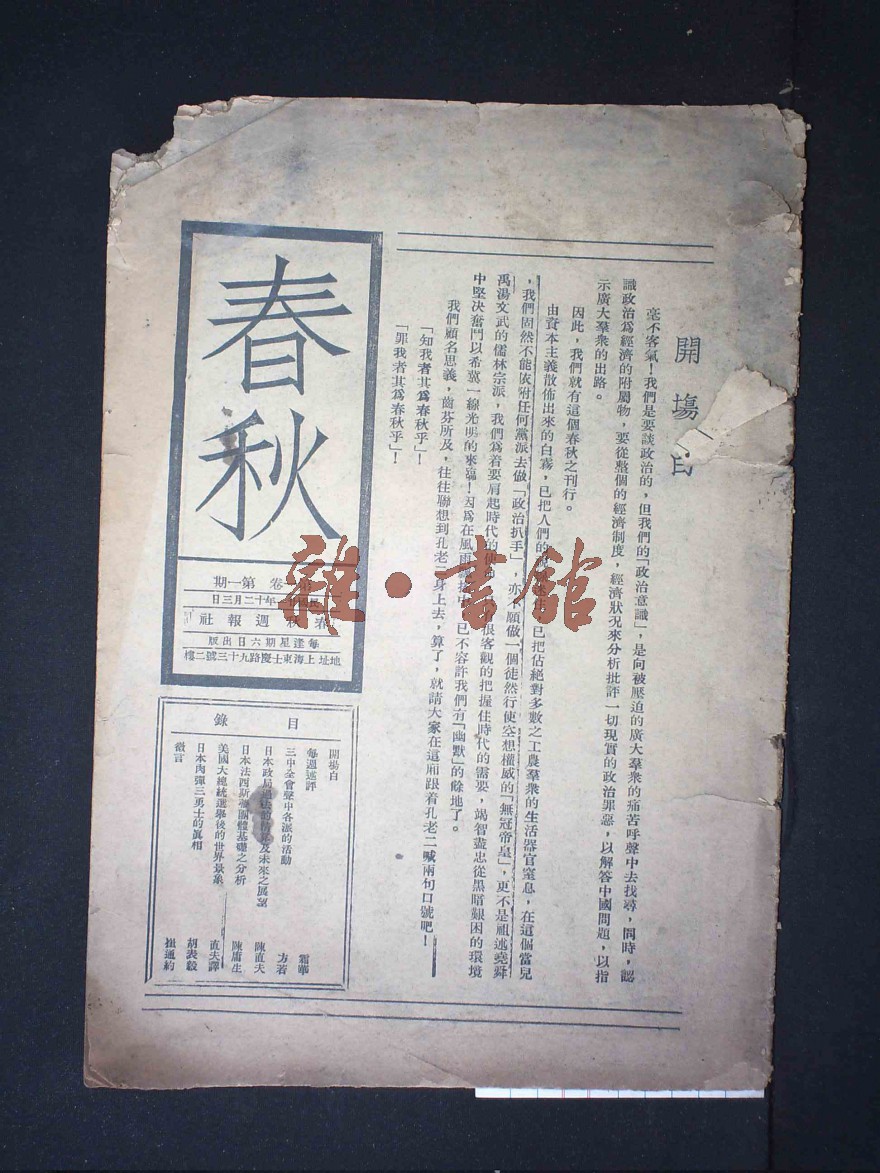 開場白
毫不客氣！我們是要談政治的，但我們的「政治意識」，是向被壓迫的廣大羣衆的痛苦呼聲中去找尋，同時，認
識政治爲經濟的附屬物，要從整個的經濟制度，經濟狀況來分析批評一切現實的政治罪惡，以解答中國問題，以指
示廣大羣衆的出路。
因此，我們就有這個春秋之刊行。
由資本主義散佈出來的白霧，已把人們的 已把佔絕對多數之工農羣衆的生活器官窒息，在這個當兒
，我們固然不能依附任何黨派去做「政治扒手」，亦不願做一個徒然行使空想權威的「無冠帝皇」，更不是祖述堯舜
禹湯文武的儒林宗派，我們爲着要肩起時代的使 很客觀的把握住時代的需要，竭智盡忠從黑暗艱困的環境
中堅決奮鬥以希冀一線光明的來臨！因爲在風雨 已不容許我們有「幽默」的餘地了。
我們顧名思義，齒芬所及，往往聯想到孔老二身上去，算了，就請大家在這廂跟着孔老二喊兩句口號吧！
「知我者其爲春秋乎」！
「罪我者其爲春秋乎」！
春秋
卷 第一期
民國 年十二月三日
春秋週報社
每逢星期六日出版
地址上海東士慶路九十三號二樓
目錄
開場白
每週述評 霜華
三中全會聲中各派的活動 方若
日本政局 及未來之展望 陳直夫
日本法西斯 團體基礎之分析 陳庸生
美國大總統選舉後的世界景象 直夫譯
日本肉彈三勇士的真相 胡表毅
徵言 拙通約
雜·書館